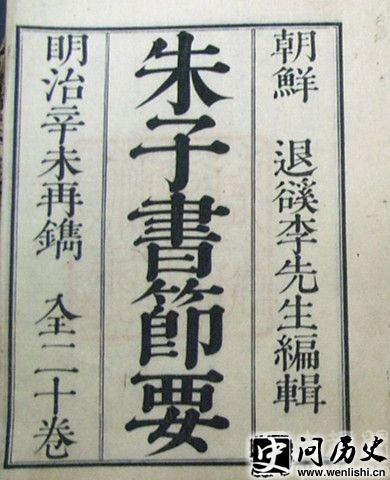 朝鮮 退溪李先生編輯
朱子書節要
明治辛未再鐫 全二十卷
史问历史
www.wenlishi.cn